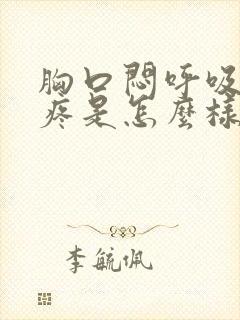 胸口悶呼吸
疼是怎麼樣
李毓佩